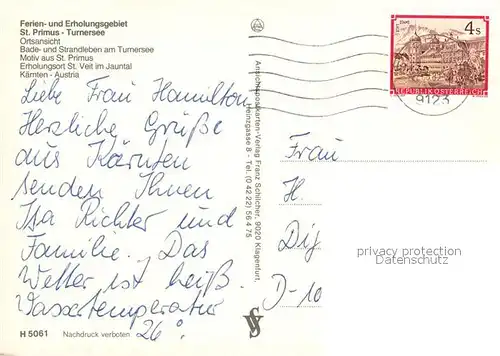 Ferien- und Erholungsgebiet
St. Primus - Turnersee
Ortsansicht
Bade- und Strandleben am Turnersee
Motiv aus St. Primus
Erholungsort St. Veit im Jauntal
Kärnten - Austria
Liebe Frau Hamilton
Herzliche Grüße
aus Kärnten
senden Ihnen
Isa Richter und
Familie. Das
Wetter ist heiß.
Wassertemperatur
26°.
H 5061 Nachdruck verboten
Ansichtspostkarten-Verlag Franz Schilcher, 9020 Klagenfurt,
Heinzgasse 8 - Tel. (0 42 22) 56 4 75
4 S
REPUBLIK ÖSTERREICH
9123
Frau
H.
Dij
D-10
privacy protection
VS